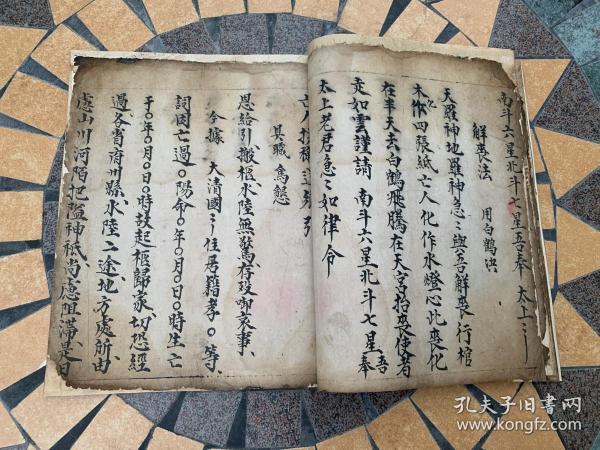 南斗六星北斗七星吾奉 太上〻
解喪法 用白鶴洪
天羅神地羅神急〻與吾解喪行棺
木作四張紙亡人化作水燈心此喪化
在半天去白鶴飛騰在天宮抬喪使者
走如雲謹請 南斗六星北斗七星吾奉
太上老君急〻如律令
具職 為懇
恩給引搬柩水陸無驚存歿啣哀事
今據 大清國〻住居籍孝〇等
詞因亡過〇陽命〇年〇月〇日〇時生亡
于〇年〇月〇日〇時故起柩歸家切恐經
過各省府州縣水陸二途地方處所由
慮山川河陌把隘神祇尚慮阻滯是日
孔夫子旧书网
kongfz.com